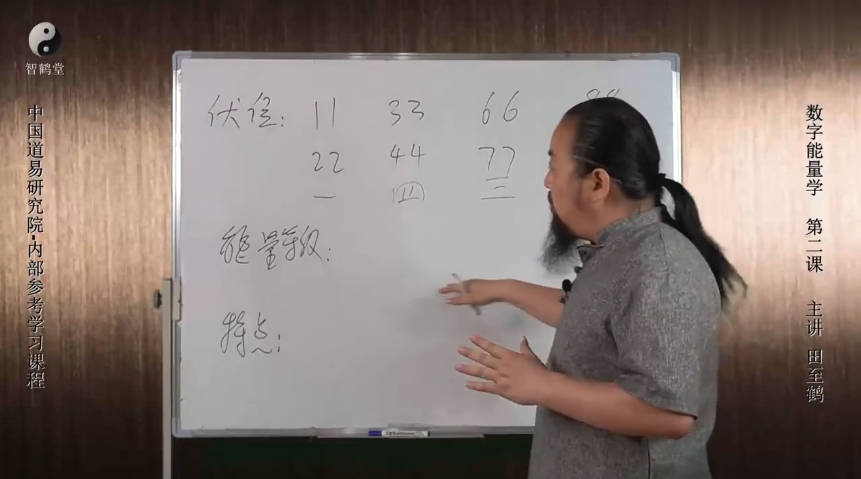 智鹤堂
中国道易研究院·内部参考学习课程
伏位: 11 33 66 88
22 44 77
一 四 三
能量等级:
特点:
数字能量学 第二课 主讲 田至鹤